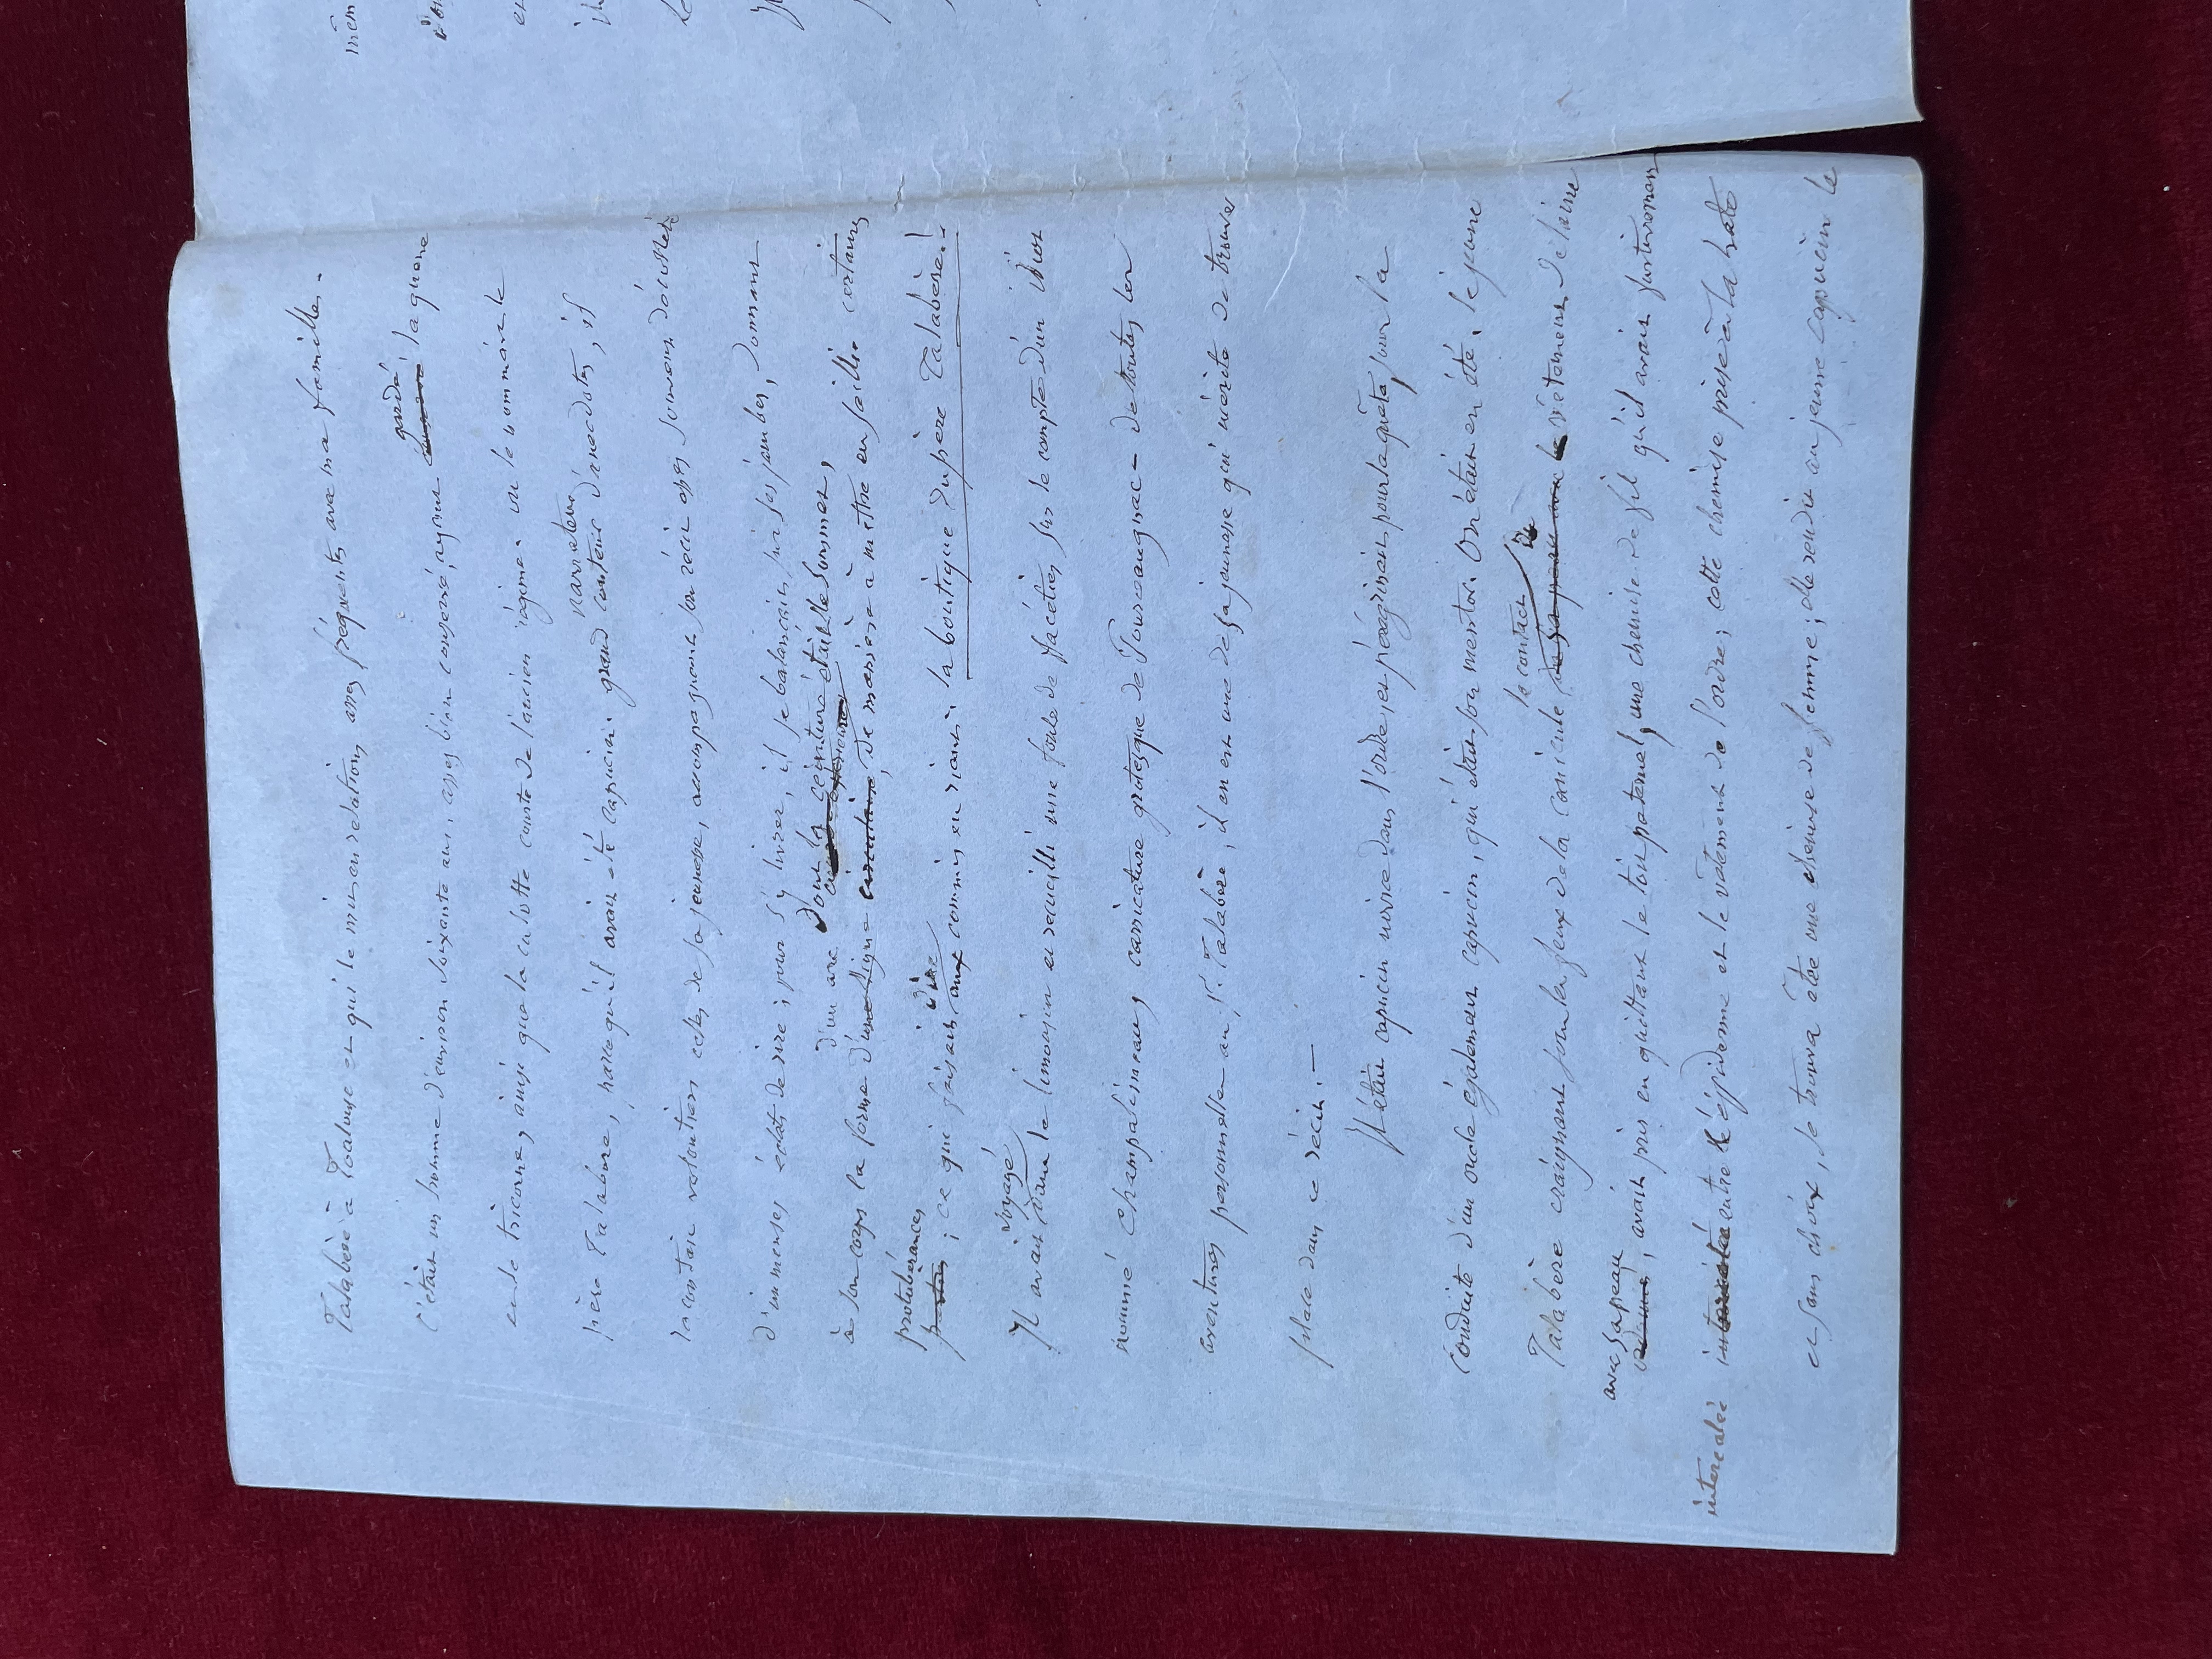 Talabère à Toulouse et qui le mis en relations assez fréquentes avec ma famille.
C'était un homme d'environ soixante ans, assez bien conservé, ayant gardé la queue
et le tricorne, ainsi que la culotte courte de l'ancien régime. on le nommait le
père Talabère, parce qu'il avait été capucin. grand conteur narrateur d'anecdotes, il
racontait volontiers celles de sa jeunesse, accompagnant son récit assez souvent
d'immenses éclats de rire; pour s'y livrer, il se balançait sur ses jambes, donnant
d'un arc dont la ceinture était le sommet,
à son corps la forme d'une ligne circulaire, de manière à mettre en saillie certaines
protubérances; ce qui faisait dire aux commis en riant: la boutique du père Talabère!
Il avait voyagé dans le limousin et recueilli une foule de facéties sur le compte d'un idiot
nommé Champalimeau, carricature grotesque de Pourceaugnac - de toutes les
aventures personnelles au p. Talabère, il en est une de sa jeunesse qui mérite de trouver
place dans ce récit. —
Il était capucin novice dans l'ordre, et pérégrinait pour la quête, sous la
conduite d'un oncle également capucin, qui était son mentor. On était en été. le jeune
Talabère craignant sous les feux de la canicule le contact du vêtement de laine
avec sa peau, avait pris en quittant le toit paternel, une chemise de fil qu'il avait furtivement
intercalée entre l'épiderme et le vêtement de l'ordre; cette chemise prise à la hâte
et sans choix, se trouva être une chemise de femme; de rendu au jeune capucin le